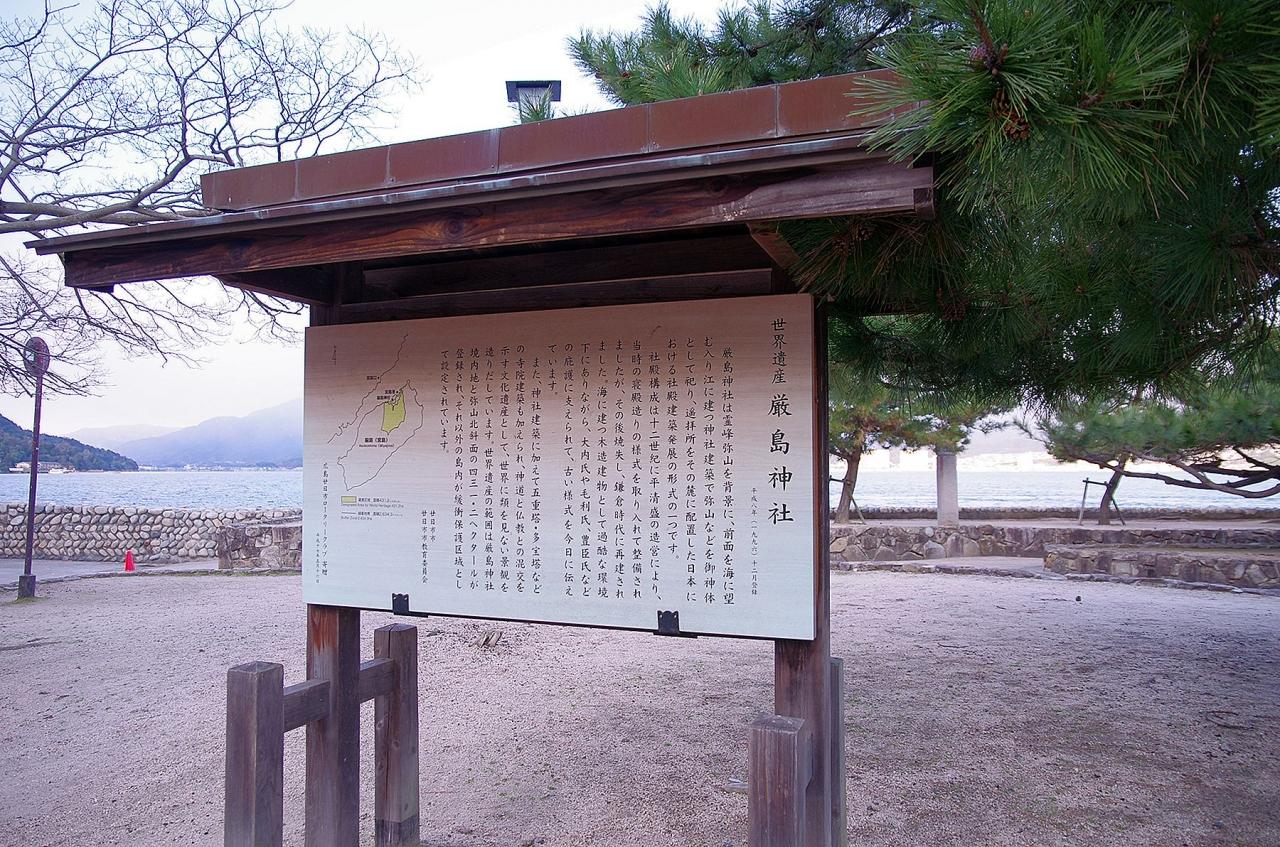 世界遺産 厳島神社
平成八年（一九九六）十二月登録
厳島神社は霊峰弥山を背景に、前面を海に望
む入り江に建つ神社建築で弥山などを御神体
として祀り、遥拝所をその麓に配置した日本に
おける社殿建築発展の形式の一つです。
社殿構成は十二世紀に平清盛の造営により、
当時の寝殿造りの様式を取り入れて整備され
ましたが、その後焼失し、鎌倉時代に再建され
ました。海に建つ木造建物として過酷な環境
下にありながら、大内氏や毛利氏、豊臣氏など
の庇護に支えられて、古い様式を今日に伝え
ています。
また、神社建築に加えて五重塔・多宝塔など
の寺院建築も加えられ、神道と仏教との混交を
示す文化遺産として、世界に類を見ない景観を
造りだしています。世界遺産の範囲は厳島神社
境内地と弥山北斜面の四三一・二ヘクタールが
登録され、それ以外の島内が緩衝保護区域とし
て設定されています。
廿日市市
廿日市市教育委員会
宮島口
宮島港
厳島神社
厳島（宮島）
広島廿日市ロータリークラブ 寄贈